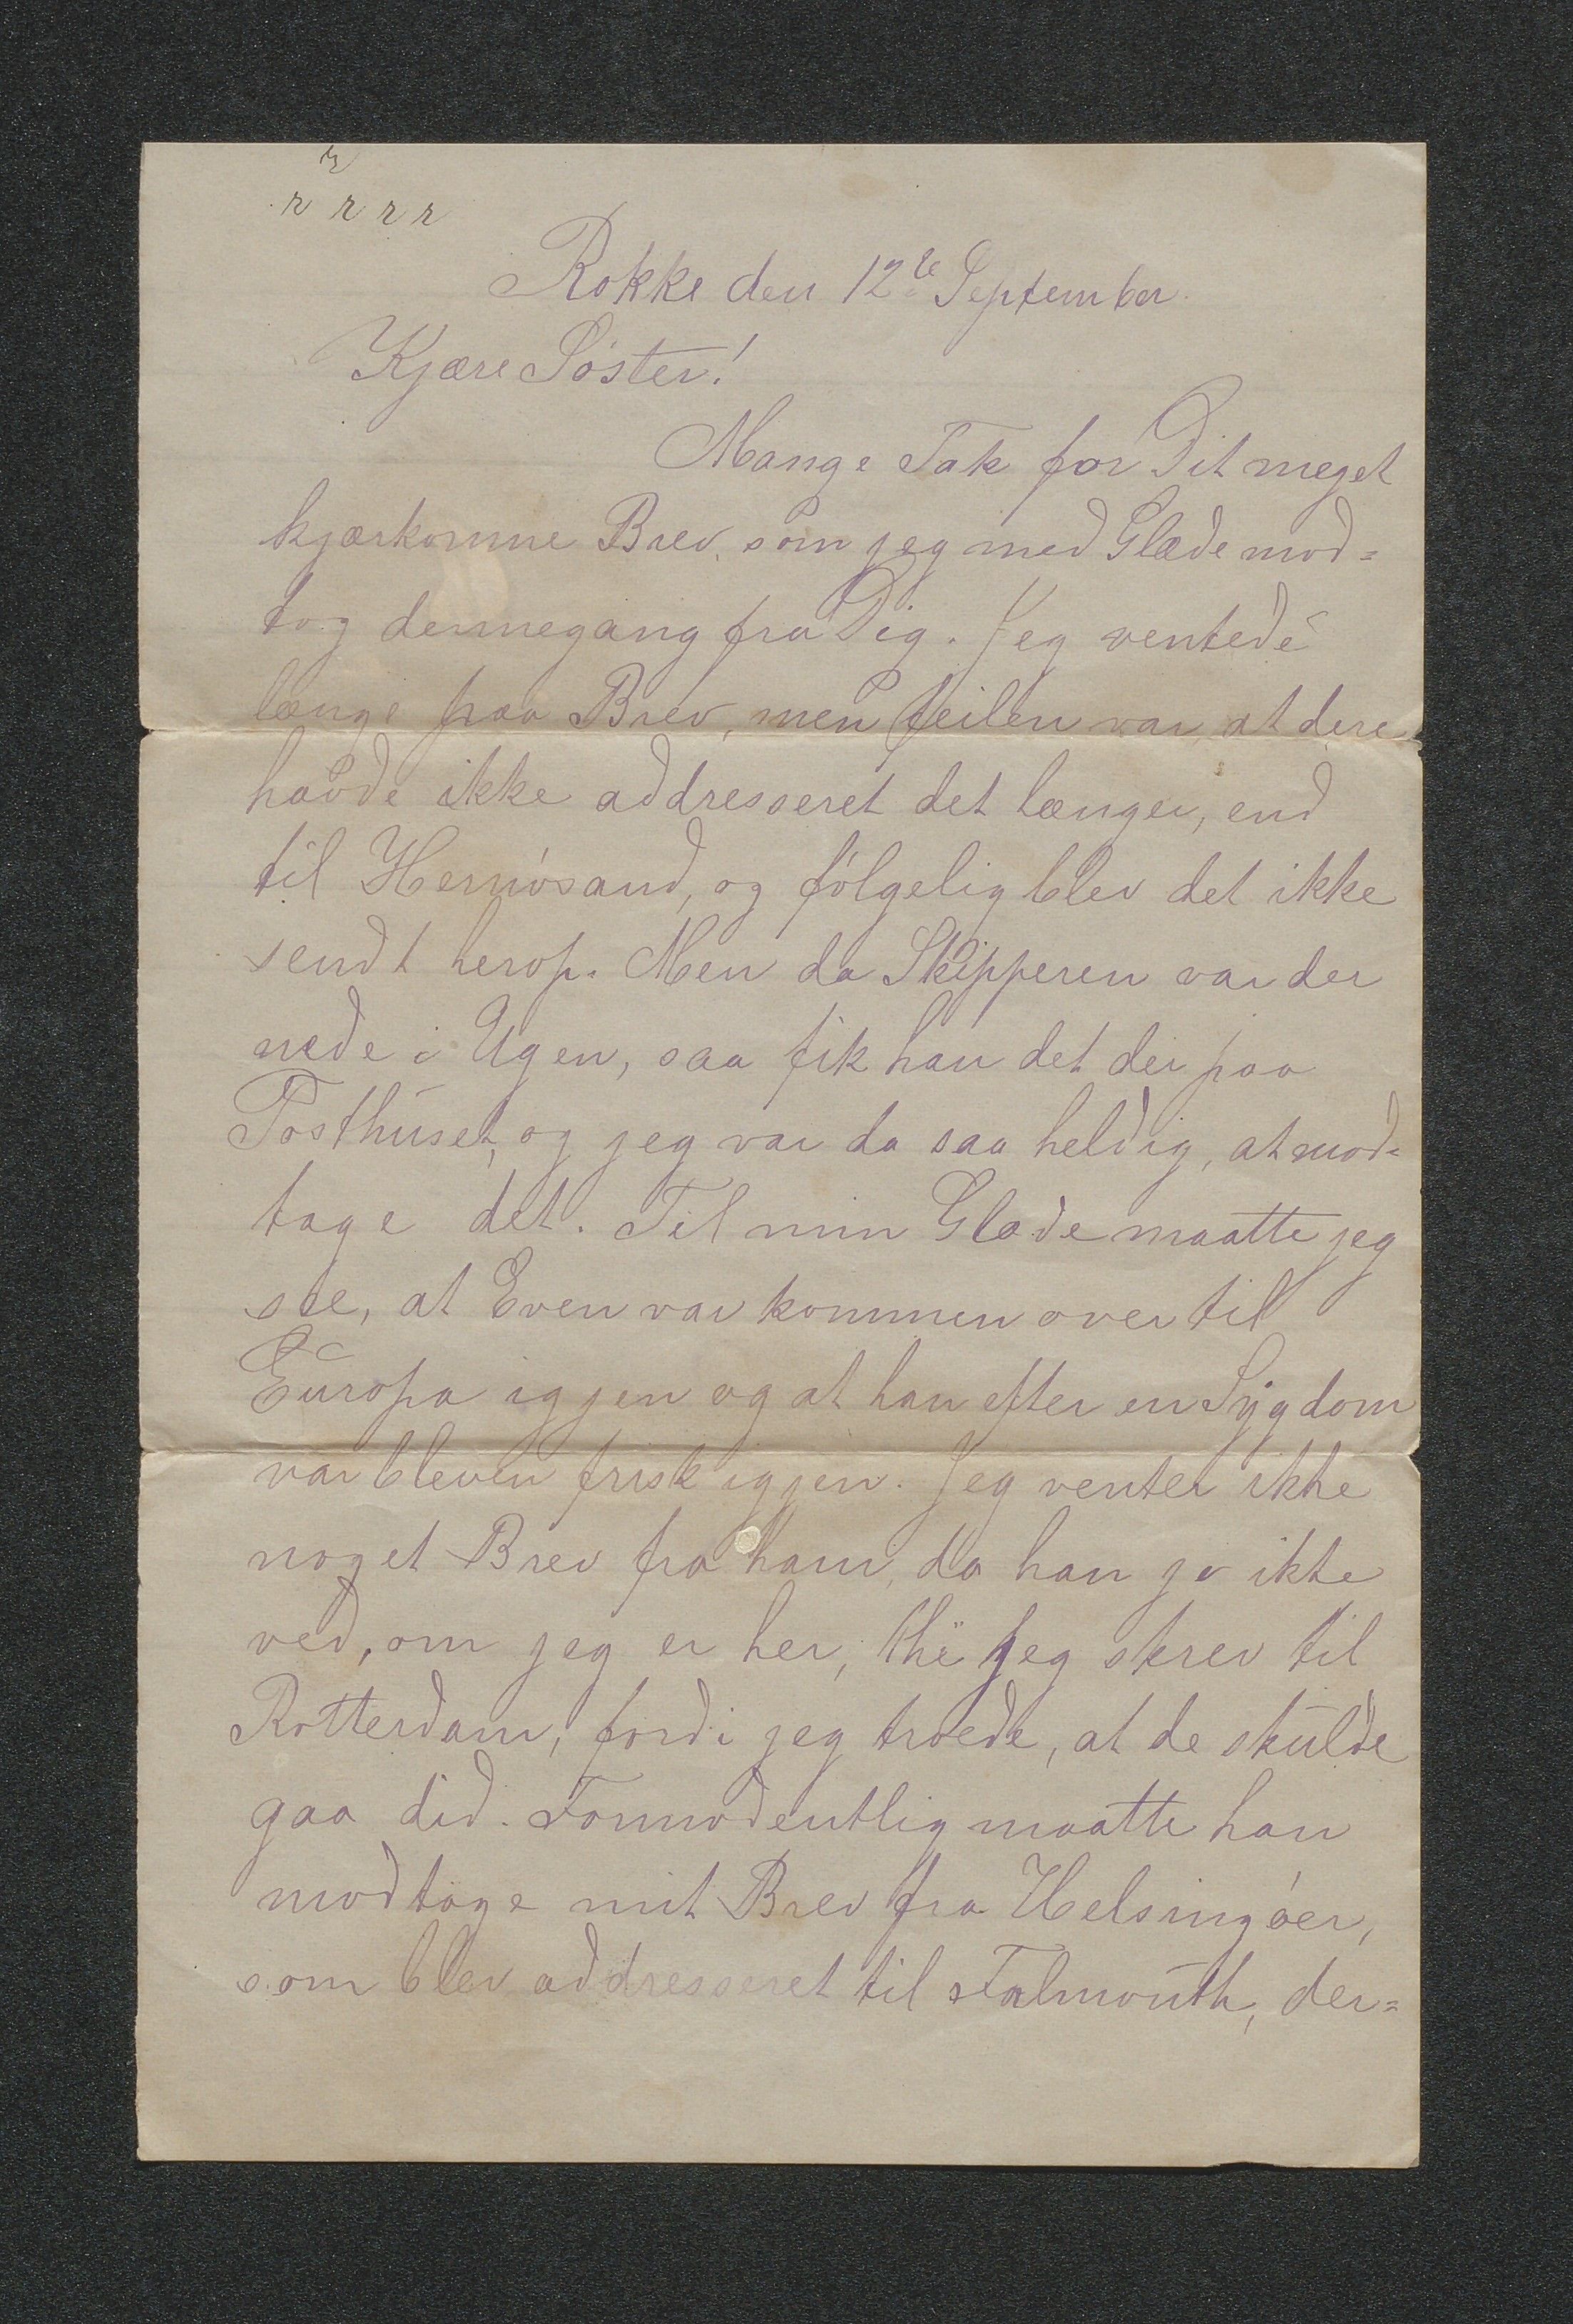 r
r r r r
Rokke den 12te September.
Kjære Søster!
Mange Tak for Dit meget
kjærkomne Brev, som jeg med Glæde mod=
tog dennegang fra Dig. Jeg ventede
længe paa Brev, men feilen var, at dere
havde ikke addresseret det længer, end
til Hernøsand, og følgelig blev det ikke
sendt herop. Men da Skipperen var der
nede i Ugen, saa fik han det der paa
Posthuset, og jeg var da saa heldig, at mod=
tage det. Til min Glæde maatte jeg
see, at Even var kommen over til
Europa igjen og at han efter en Sygdom
var bleven frisk igjen. Jeg venter ikke
noget Brev fra ham, da han jo ikke
ved, om jeg er her, thi jeg skrev til
Rotterdam, fordi jeg troede, at de skulde
gaa did. Formodentlig maatte han
modtage mit Brev fra Helsingøer,
som blev addresseret til Falmouth, der=